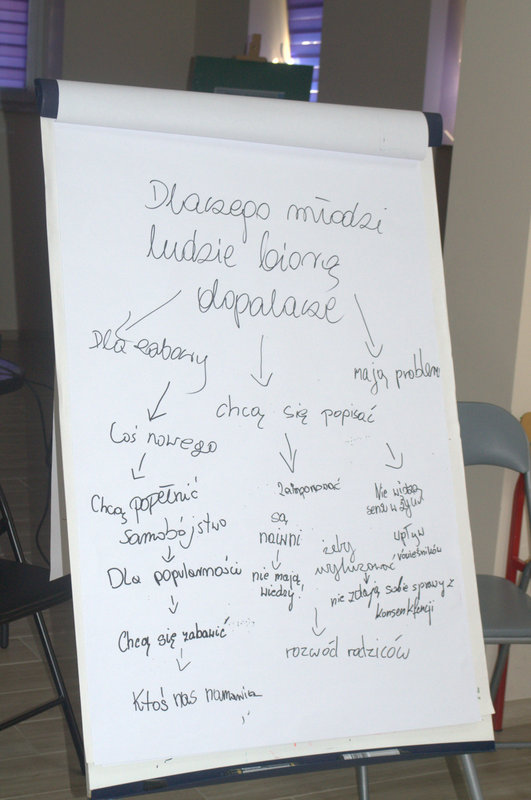 Dlaczego młodzi
ludzie biorą
dopalacze
Dla zabawy
mają problem
chcą się popisać
Coś nowego
Chcą popełnić
samobójstwo
Dla popularności
Chcą się zabawić
Ktoś nas namawia
zaimponować
są
naiwni
nie mają
wiedzy!
żeby
wyluzować
rozwód rodziców
Nie widzą
sensu w życiu
wpływ
rówieśników
nie zdają sobie sprawy z
konsenkfencji